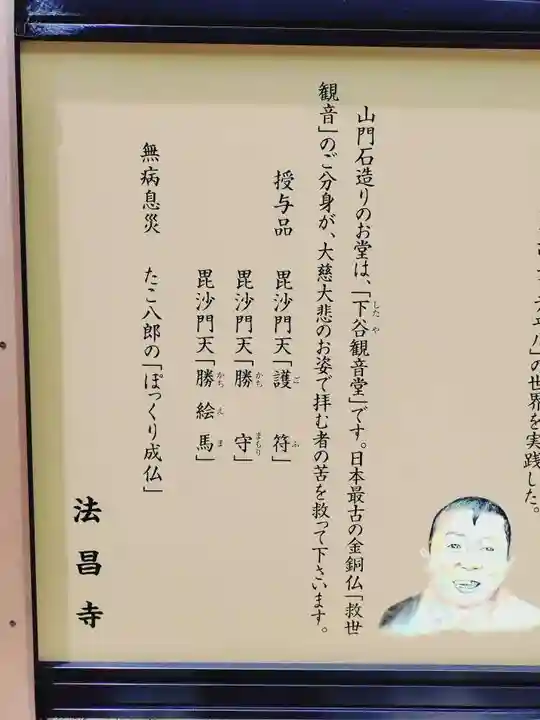 の世界を実践した。
山門石造りのお堂は、「下谷観音堂」です。日本最古の金銅仏「救世
観音」のご分身が、大慈大悲のお姿で拝む者の苦を救って下さいます。
授与品 毘沙門天「護符」
毘沙門天「勝守」
毘沙門天「勝絵馬」
無病息災 たこ八郎の「ぽっくり成仏」
法昌寺